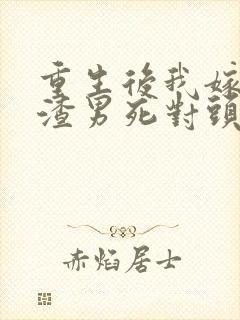 重生後我嫁
渣男死對頭
赤焰居士